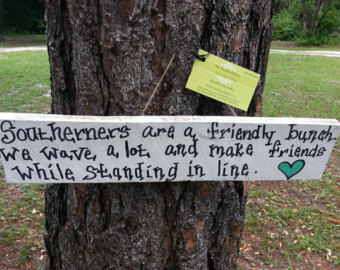 Southerners are a friendly bunch
we wave a lot and make friends
while standing in line.